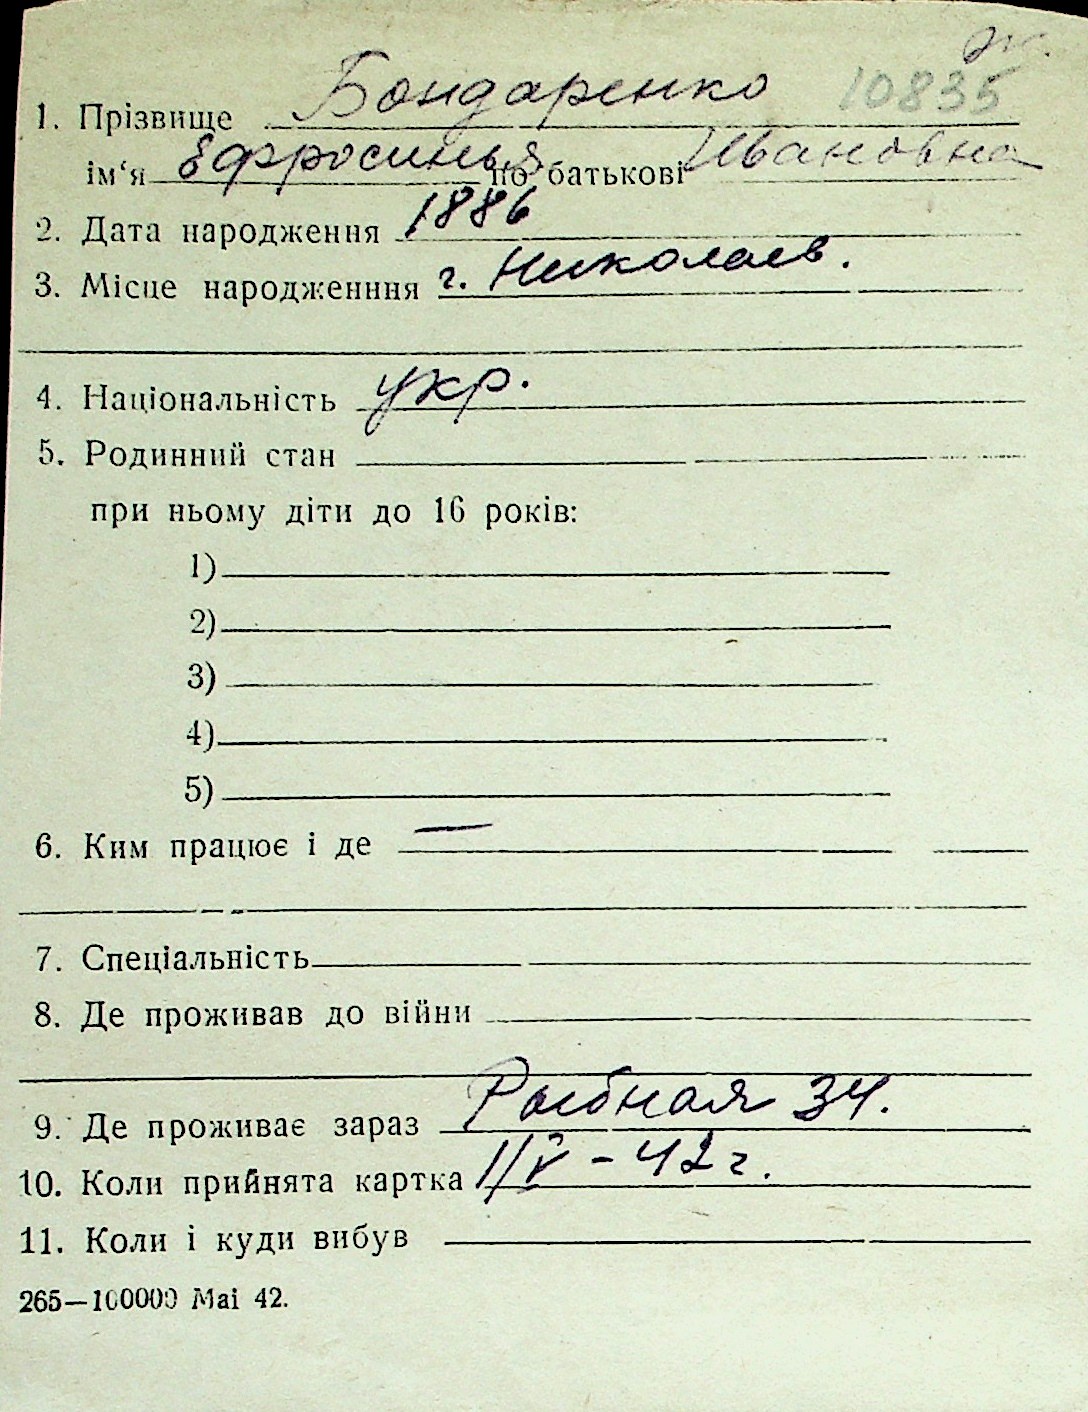 ж.
1. Прізвище Бондаренко 10835
ім‘я Ефросинья по батькові Ивановна
2. Дата народження 1886
3. Місце народженння г. Николаев.
4. Національність укр.
5. Родинний стан
при ньому діти до 16 років:
1)
2)
3)
4)
5)
6. Ким працює і де —
7. Спеціальність
8. Де проживав до війни
9. Де проживає зараз Рыбная 34.
10. Коли прийнята картка 1/V – 42 г.
11. Коли і куди вибув
265—100000 Mai 42.